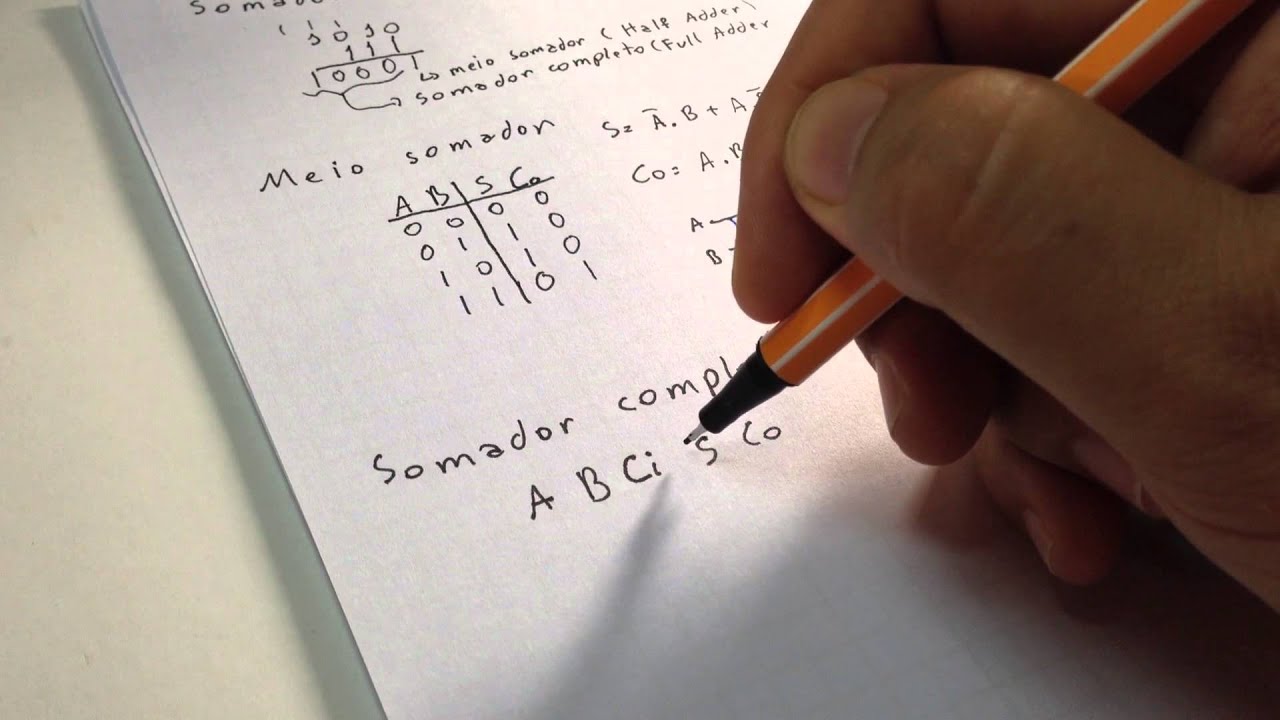 Somado
1 1 1
1 0 1 0
1 1 1
1 0 0 0 1
↳ meio somador (Half Adder)
→ somador completo (Full Adder
Meio somador
A B S Co
0 0 0 0
0 1 1 0
1 0 1 0
1 1 0 1
S= A̅.B + A
Co= A.B
A
B
Somador compl
A B Ci S Co